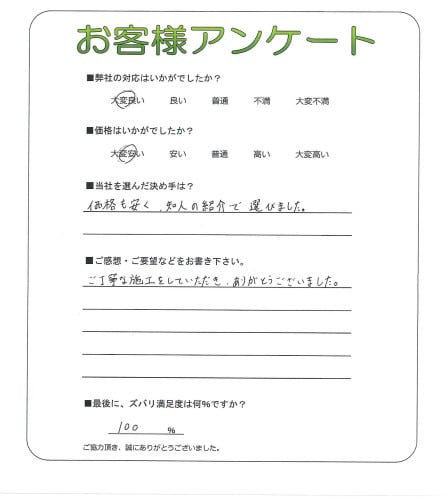 お客様アンケート
■弊社の対応はいかがでしたか？
大変良い 良い 普通 不満 大変不満
■価格はいかがでしたか？
大変安い 安い 普通 高い 大変高い
■当社を選んだ決め手は？
価格も安く、知人の紹介で選びました。
■ご感想・ご要望などをお書き下さい。
ご丁寧な施工をしていただき、ありがとうございました。
■最後に、ズバリ満足度は何%ですか？
100 %
ご協力頂き、誠にありがとうございました。